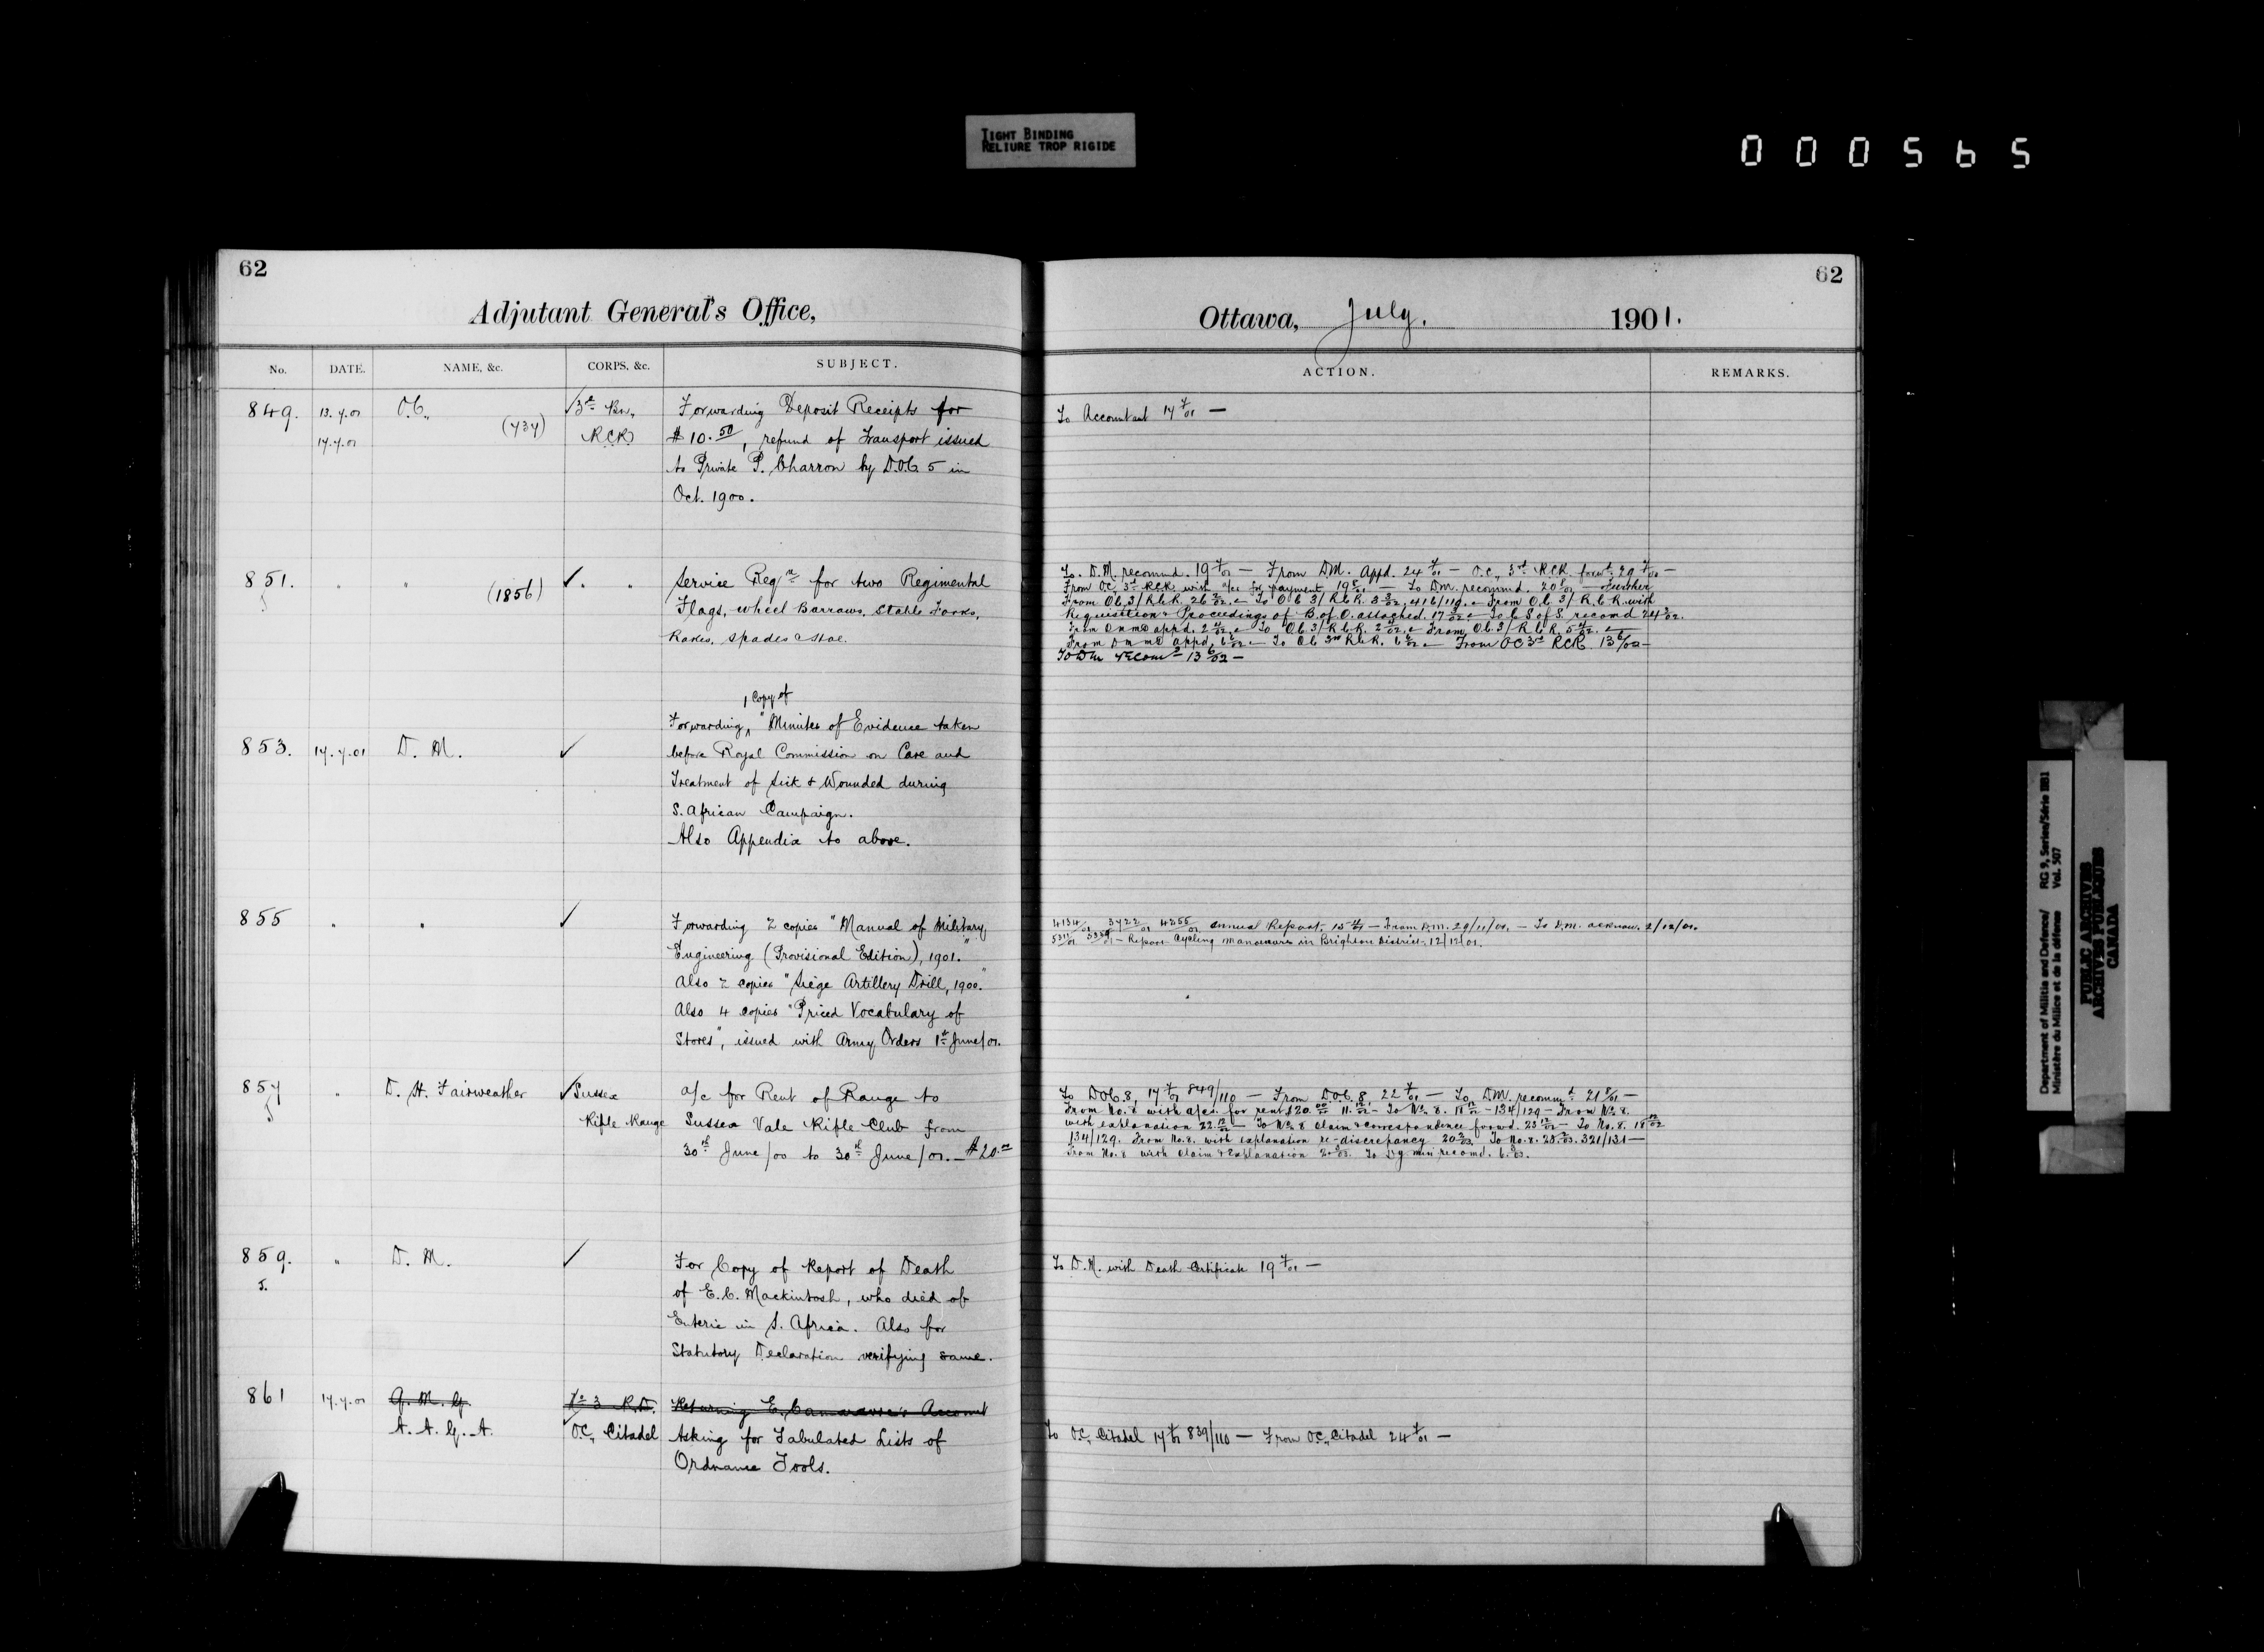 TIGHT BINDING
RELIURE TROP RIGIDE
000565
62
Adjutant General's Office,
No. DATE. NAME, &c. CORPS, &c. SUBJECT.
849. 13.7.01 O.C., 3rd Bn., Forwarding Deposit Receipts for
17.7.01 (737) RCR $10.50, refund of Transport issued
to Private P. Charron by D.O.C. 5 in
Oct. 1900.
851. " " (1856) ✓ " " Service Reqn for two Regimental
Flags, wheel Barrows, Stable Forks,
Rakes, Spades & Hoe.
1 Copy of
Forwarding, "Minutes of Evidence taken
853. 17.7.01 D. M. ✓ before Royal Commission on Care and
Treatment of Sick & Wounded during
S. African Campaign.
Also Appendix to above.
855 " " ✓ Forwarding 2 copies "Manual of Military
Engineering (Provisional Edition), 1901."
Also 2 copies "Siege Artillery Drill, 1900."
Also 4 copies "Priced Vocabulary of
Stores", issued with Army Orders 1st June/01.
857 " D. H. Fairweather ✓ Sussex a/c for Rent of Range to
Rifle Range Sussex Vale Rifle Club from
30th June/00 to 30th June/01. — $20.00
859. " D. M. ✓ For Copy of Report of Death
5. of E. C. Mackintosh, who died of
Enteric in S. Africa. Also for
Statutory Declaration verifying same.
861 17.7.01 Q. M. G. No 3 R.D. Returning E. Account
A. A. G. A. O.C., Citadel Asking for Tabulated Lists of
Ordnance Tools.
62
Ottawa, July. 1901.
ACTION. REMARKS.
To Accountant 17 7/01 —
To D.M. recommd. 19 7/01 — From D.M. Appd. 24 7/01 — O.C., 3rd RCR forwd. 29 7/01 —
From OC, 3rd RCR with a/cs for payment 19 8/01 — To DM. recommd. 20 8/01 Further
From O.C. 3/R.C.R. 26 2/02. — To O.C 3/R.C.R. 3 3/02. 416/119. — From O.C. 3/R.C.R. with
Requisition & Proceedings of B. of O. attached. 17 3/02 — To C S of S. recomd 24 3/02.
From DMMD appd. 2 4/02. — To O.C. 3/R.C.R. 2 4/02. — From O.C. 3/R.C.R. 5 4/02. —
From DMMD appd. 6 6/02 — To OC 3rd R.C.R. 6 6/02 — From OC 3rd RCR. 13 6/02 —
To DM recomd 13 6/02 —
4134/01 3722/01 4255/01 Annual Report. 15 — From D.M. 29/11/01. — To D.M. acknow. 2/12/01.
5311/01 5359/01 — Report Cycling Manoeuvres in Brighton District. 12/12/01.
To DOC. 8, 17 7/01 849/110 — From DOC. 8 22 7/01 — To DM. recommd 21 8/01 —
From No. 8 with a/cs. for rent $20.00 11.12/02 — To No. 8. 18 12/02 — 134/129 — From No. 8.
with explanation 22 12/02 — To No. 8 Claim & Correspondence forwd. 23 12/02 — To No. 8. 18 12/02
134/129. From No. 8. with explanation re discrepancy 20 2/03. To No. 8. 25 2/03. 321/131 —
From No. 8 with Claim & Explanation 2 3/03. To Dy min recomd. 6 3/03.
To D.M. with Death Certificate 19 7/01 —
To O.C., Citadel 17 7/01 839/110 — From O.C., Citadel 24 7/01 —
Department of Militia and Defence/ RG 9, Series/Série IIB1
Ministère du Milice et de la défense Vol. 507
PUBLIC ARCHIVES
ARCHIVES PUBLIQUES
CANADA